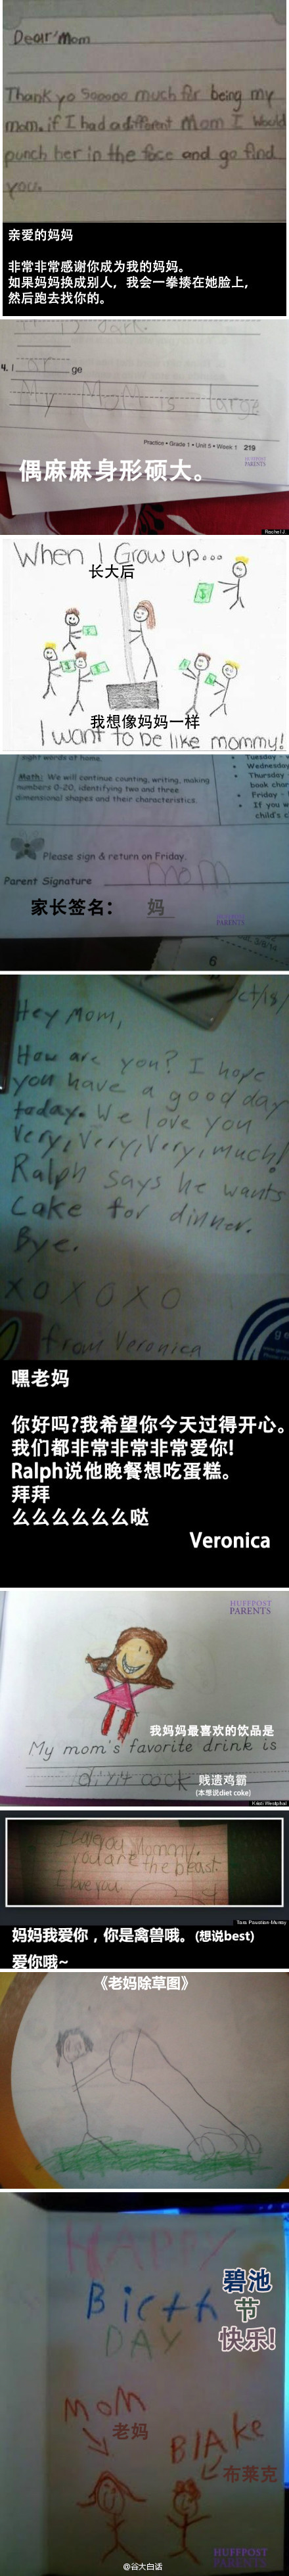 Dear Mom
Thank yo Sooooo much for being my
mom. if I had a different Mom I would
punch her in the face and go find
you.
亲爱的妈妈
非常非常感谢你成为我的妈妈。
如果妈妈换成别人，我会一拳揍在她脸上，
然后跑去找你的。
dark.
4. I
ar ge
My Mom is large
Practice • Grade 1 • Unit 5 • Week 1 219
HUFFPOST
PARENTS
偶麻麻身形硕大。
Rachel J
When I Grow up...
长大后
$
我想像妈妈一样
I want to be like mommy!
sight words at home.
Math: We will continue counting, writing, making
numbers 0-20, identifying two and three
dimensional shapes and their characteristics.
Tuesday -
Wednesday
Thursday
book shar
Friday -
If you w
child's c
Please sign & return on Friday.
Parent Signature mom
家长签名： 妈
HUFFPOST
PARENTS
6
Hey Mom,
How are you? I hope
you have a good day
today. We love you
Very, Very, Very, much!
Ralph says he wants
Cake for dinner.
Bye.
XOXOXO
from Veronica
嘿老妈
你好吗?我希望你今天过得开心。
我们都非常非常非常爱你!
Ralph说他晚餐想吃蛋糕。
拜拜
么么么么么么哒
Veronica
HUFFPOST
PARENTS
我妈妈最喜欢的饮品是
My mom's favorite drink is
diyt cock
贱遗鸡霸
(本想说diet coke)
Kristi Westphal
I love you Mommy.
you are the beast.
I love you.
Tara Pawelise-Murray
妈妈我爱你，你是禽兽哦。(想说best)
爱你哦~
《老妈除草图》
HAPPY
Bicth
DAY
碧池
节
快乐!
MOM
老妈
BLAKE
布莱克
HUFFPOST
PARENTS
@谷大白话